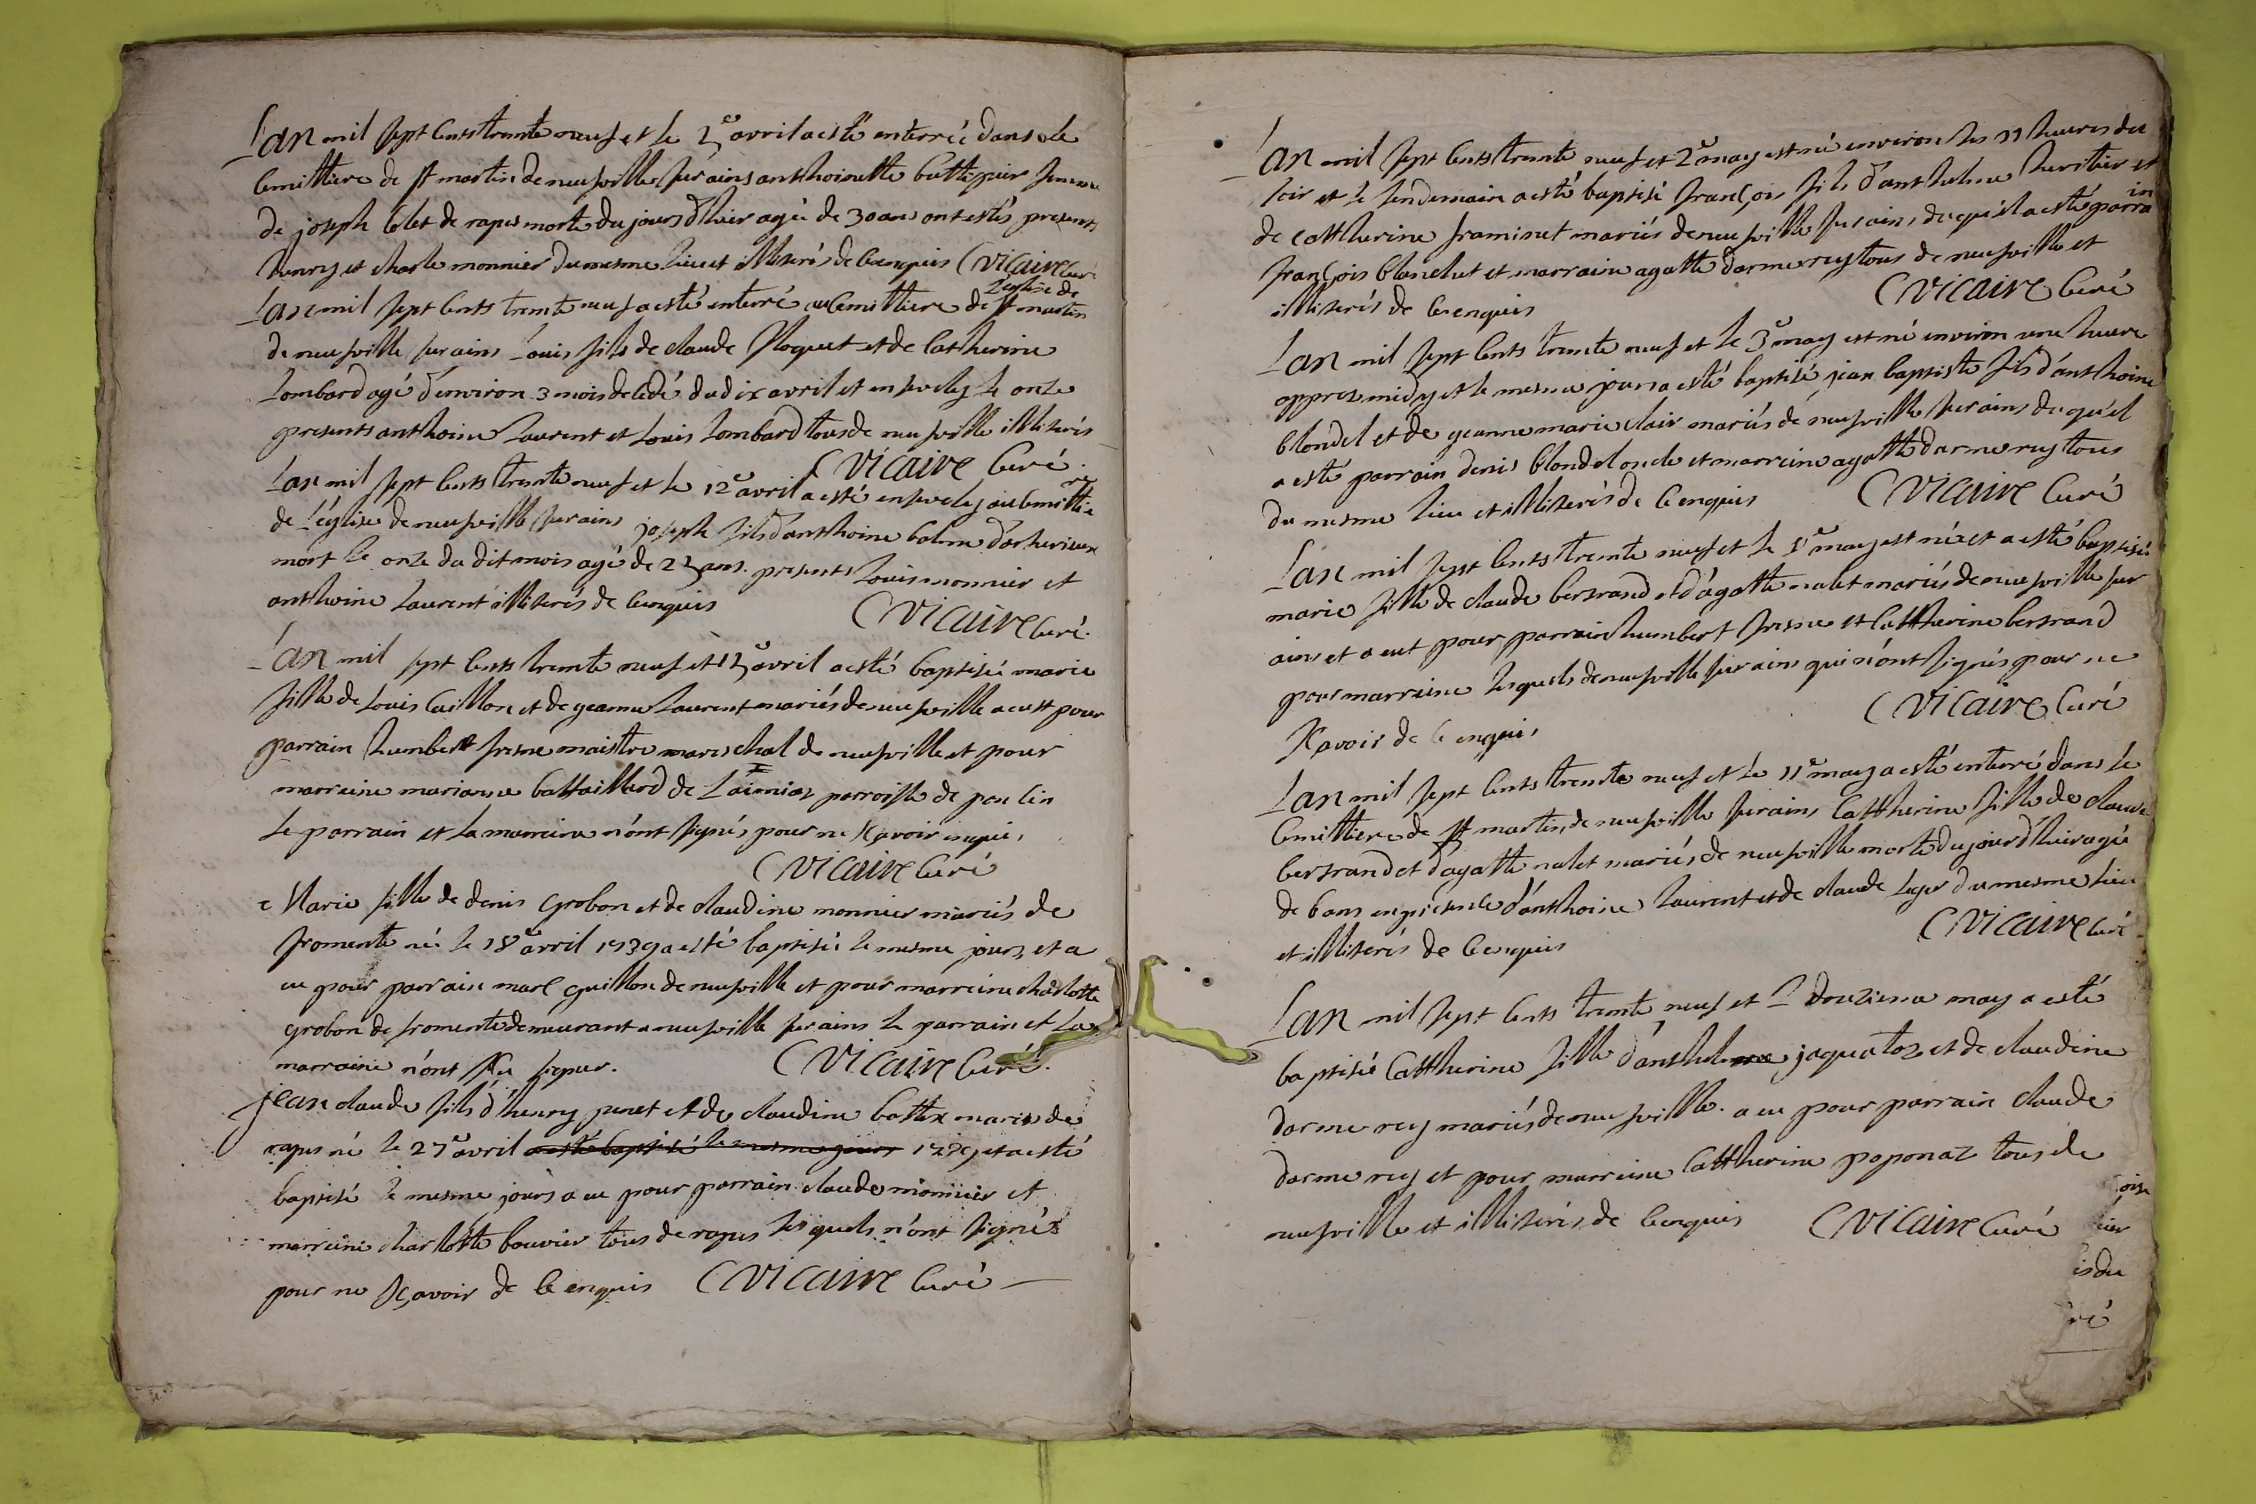 L'an mil sept cents trente neuf et le 5e avril a esté enterrée dans le
cemittiere de st martin de neufville sur ains anthoinette battiguir femme
de joseph colet de rapes morte du jours d'hier agée de 30 ans ont estés presents
henry et charle monnier du mesme lieu et illiterés de ce enquis Vicaire curé
L'an mil sept cents trente neuf a esté enterré au cemittiere de l'eglise de st martin
de neufville sur ains Louis fils de claude Ploquet et de catherine
Lombard agé d'environ 3 mois decedé du dix avril et ensevely le onze
presents anthoine Laurent et Louis Lombard tous de neufville illiterés
Vicaire Curé.
L'an mil sept cents trente neuf et le 12e avril a esté ensevely au cemittiere
de L'église de neufville sur ains joseph fils d'anthoine bolme
mort le onze du dit mois agé de 25 ans. presents Louis monnier et
anthoine Laurent illiterés de ce enquis Vicaire Curé.
L'an mil sept cents trente neuf et 15e avril a esté baptisée marie
fille de Louis Cuillon et de jeanne Laurent mariés de neufville a eust pour
parrain humbert fresne maistre mareschal de neufville et pour
marreine marianne battaillard de parroisse de poncin
Le parrain et la marreine n'ont signés pour ne sçavoir enquis,
Vicaire Curé
Marie fille de denis grobon et de claudine monnier mariés de
fromente née le 18e avril 1739 a esté baptisée le mesme jours, et a
eu pour parrain marc guillon de neufville et pour marreine charlotte
grobon de fromente demeurant a neufville sur ains le parrain et La
marraine n'ont sçu signer. Vicaire Curé.
jean claude fils d'henry junet et de claudine battex mariés de
rapes né le 27e avril a esté baptisé le mesme jours 1739 et a esté
baptisé le mesme jours a eu pour parrain claude monnier et
marreine charlotte bouvier tous de rapes lesquels n'ont signés
pour ne sçavoir de ce enquis Vicaire Curé
L'an mil sept cents trente neuf et 2e may est né environ les 11 heures du
soir et le lendemain a esté baptisé françois fils d'anthelme heritier et
de cattherine framinet mariés de neufville sur ains, duquel a esté parrain
françois blanchet et marraine agatte darmerey tous de neufville et
illiterés de ce enquis Vicaire Curé
L'an mil sept cents trente neuf et le 3e may est né environ une heure
appres midy et le mesme jours a esté baptisé jean baptiste fils d'anthoine
blondel et de jeanne marie clair mariés de neufville sur ains duquel
a esté parrain denis blondel oncle et marreine agatte darmerey tous
du mesme lieu et illiterés de ce enquis Vicaire Curé
L'an mil sept cents trente neuf et le 5e may est née et a esté baptisée
marie fille de claude bertrand et d'agatte nalet mariés de neufville sur
ains et a eut pour parrain humbert fresne et Cattherine bertrand
pour marreine lesquels de neufville sur ains qui n'ont signés pour ne
sçavoir de ce enquis Vicaire Curé
L'an mil sept cents trente neuf et Le 11e may a esté enterré dans le
cemittiere de st martin, de neufville sur ains Cattherine fille de claude
bertrand et d'agatte nalet mariés, de neufville morte du jour d'hier agée
de 6 ans en presence d'anthoine Laurent et de claude Leger du mesme lieu
et illiterés de ce enquis Vicaire Curé
L'an mil sept cents trente neuf et douzieme may a esté
baptisée Cattherine fille d'anthelme jaquetoz et de claudine
darmerey mariés de neufville. a eu pour parrain claude
darmerey et pour marreine Cattherine poponaz tous de
neufville et illiterés, de ce enquis Vicaire Curé